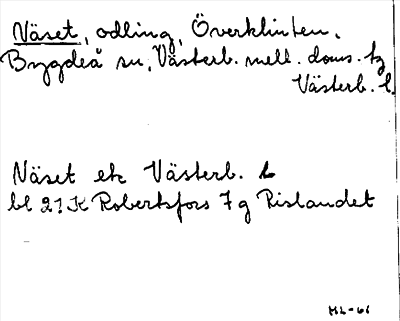 Näset, odling, Överklinten,
Bygdeå sn, Västerb. mell. doms. tg
Västerb. l.
Näset ek Västerb. L
bl 21 K Robertsfors 7 g Rislandet
ML-61